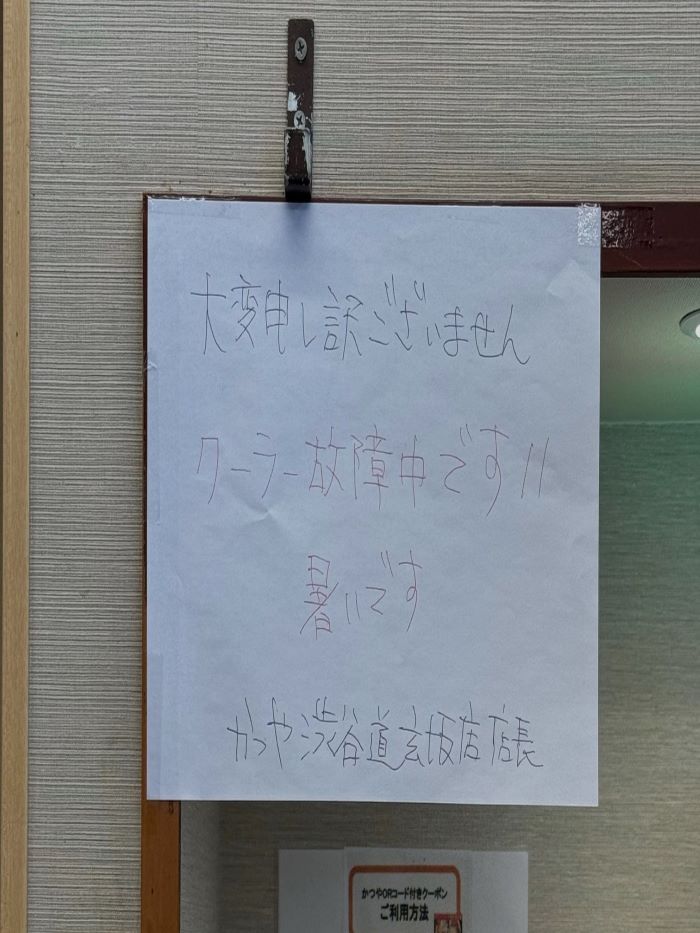 大変申し訳ございません
クーラー故障中です!!
暑いです
かつや渋谷道玄坂店店長
かつやQRコード付きクーポン
ご利用方法